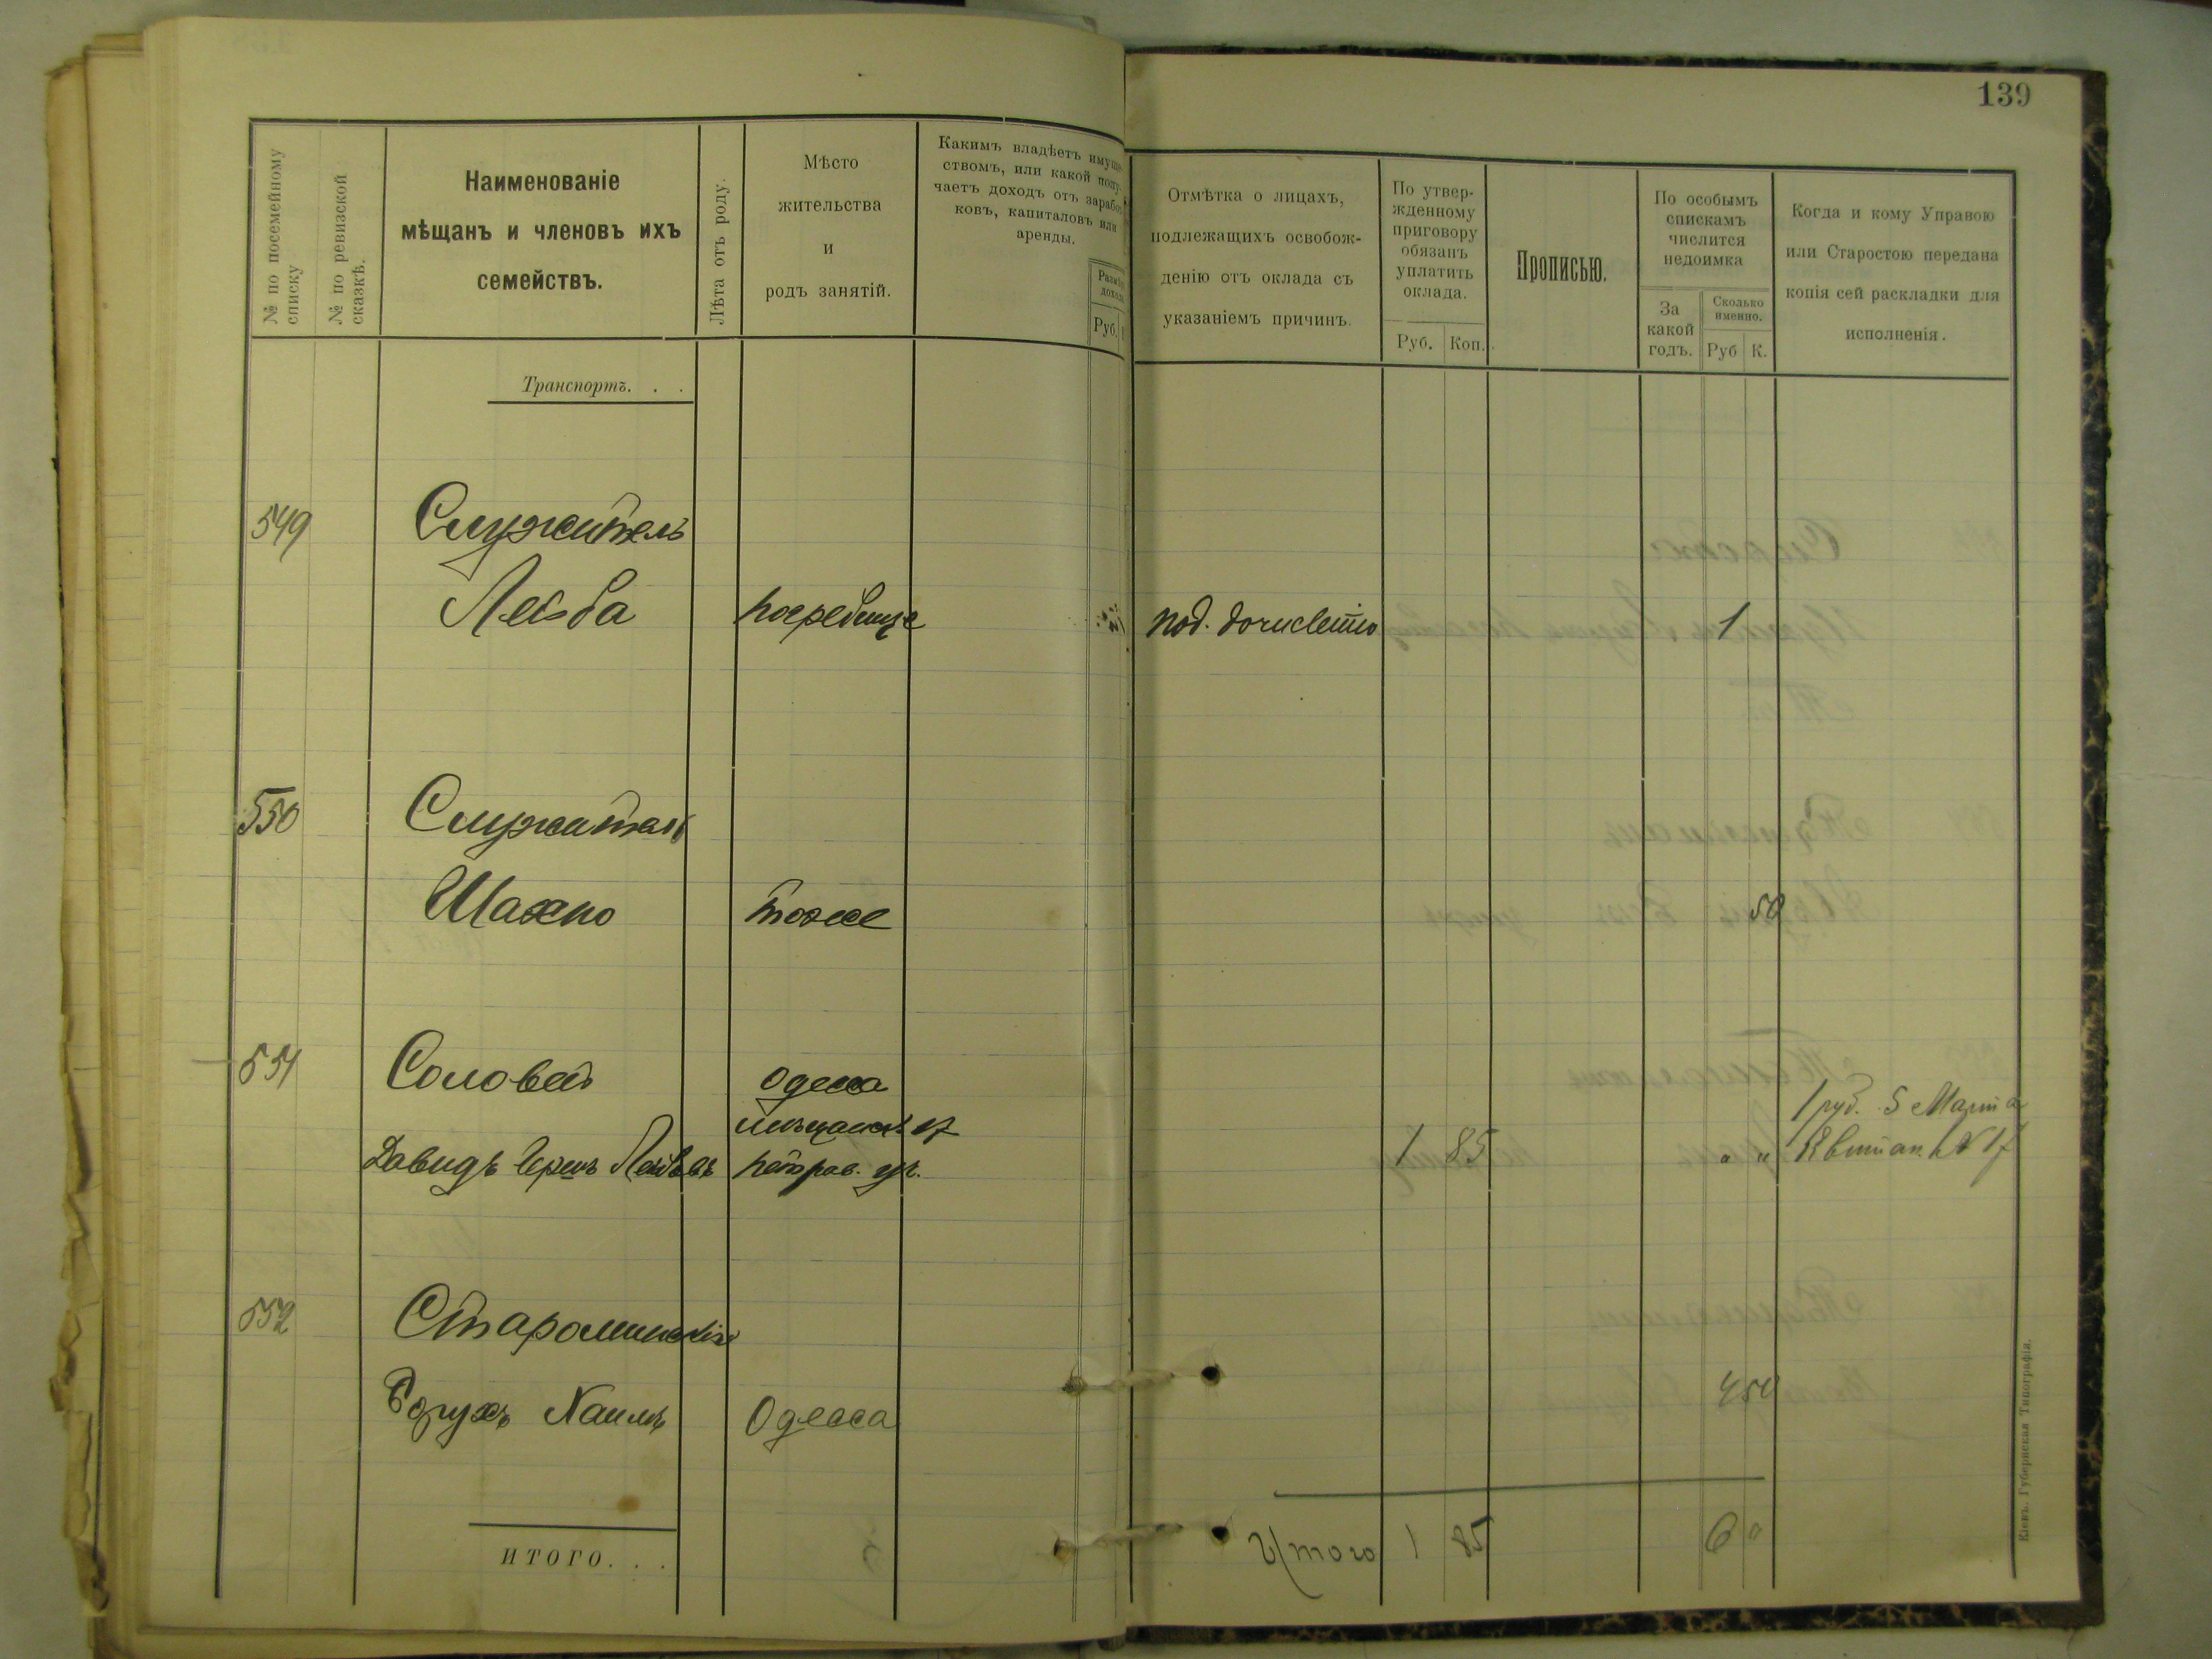 139
№ по посемейному списку
№ по ревизской сказкѣ.
Наименованіе
мѣщанъ и членовъ ихъ
семействъ.
Лѣта отъ роду.
Мѣсто
жительства
и
родъ занятій.
Какимъ владѣетъ имуще-
ствомъ, или какой полу-
чаетъ доходъ отъ заработ-
ковъ, капиталовъ или
аренды.
Размѣръ
дохода
Руб.
Отмѣтка о лицахъ,
подлежащихъ освобож-
денію отъ оклада съ
указаніемъ причинъ.
По утвер-
жденному
приговору
обязанъ
уплатить
оклада.
Руб. Коп.
Прописью.
По особымъ
спискамъ
числится
недоимка
За
какой
годъ.
Сколько
именно.
Руб К.
Когда и кому Управою
или Старостою передана
копія сей раскладки для
исполненія.
Транспортъ. . .
549 Служитель
Лейба Погребище под. 1
550 Служитель
Шахно тоже 50
551 Соловей Одесса
1 руб. 5 Марта
Давидъ Герш Лейбовъ 1 85 " " Квитан. № 17
552 Староминскій
Борухъ Хаимъ Одесса 4 50
ИТОГО. . .
Итого 1 85 6 "
Кіевъ. Губернская Типографія.